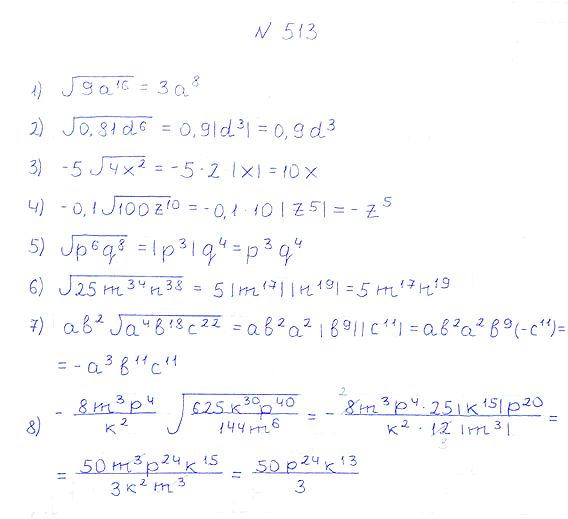 N 513
1) √(9a¹⁶) = 3a⁸
2) √(0,81d⁶) = 0,9|d³| = 0,9d³
3) -5√(4x²) = -5·2|x| = 10x
4) -0,1√(100z¹⁰) = -0,1·10|z⁵| = -z⁵
5) √(p⁶q⁸) = |p³|q⁴ = p³q⁴
6) √(25m³⁴n³⁸) = 5|m¹⁷||n¹⁹| = 5m¹⁷n¹⁹
7) ab²√(a⁴b¹⁸c²²) = ab²a²|b⁹||c¹¹| = ab²a²b⁹(-c¹¹) =
= -a³b¹¹c¹¹
8) - 8m³p⁴/k² √(625k³⁰p⁴⁰/144m⁶) = - 8m³p⁴·25|k¹⁵|p²⁰/k²·12|m³| =
= 50m³p²⁴k¹⁵/3k²m³ = 50p²⁴k¹³/3